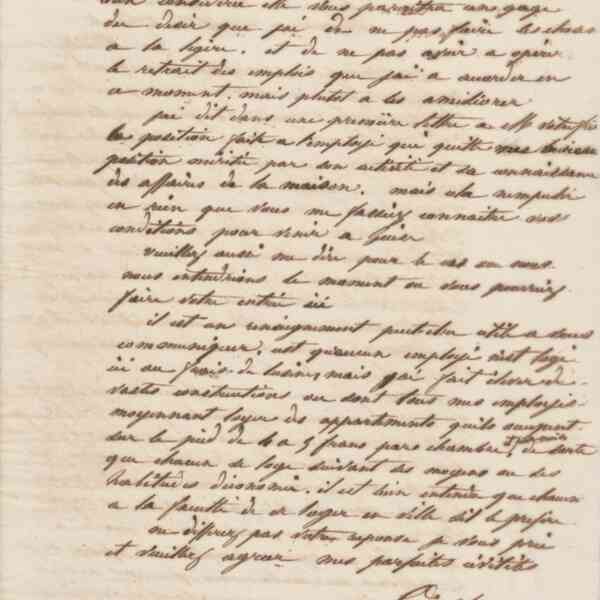 bien convaincu elle vous paraitra un gage
du desir que jai de ne pas faire les choses
a la legere. et de ne pas avoir a operer
le retrait des emplois que jai a accorder en
ce moment. mais plutot a les améliorer
jai dit dans une première lettre a Mr votre fils
la position faite a l'employé qui quitte mes
position méritée par son activité et sa connaissance
des affaires de la maison. mais cela nempeche
en rien que vous me fassiez connaitre vos
conditions pour venir a
veuillez aussi me dire pour le cas ou nous
nous entendrions le moment ou vous pourriez
faire votre entrée ici
il est un renseignement particulier utile a vous
communiquer. cest quaucun employé nest logé
ici au frais de lusine, mais jai fait élever de
vastes constructions ou sont tous mes employés
moyennant loyer des appartements quils occupent
sur le pied de 4 a 5 francs par chambre, de sorte
que chacun se loge suivant ses moyens ou ses
habitudes déconomie. il est bien entendu que chacun
a la faculté de se loger en ville sil le préfère
ne differez pas votre reponse je vous prie
et veuillez agréer mes parfaites civilités